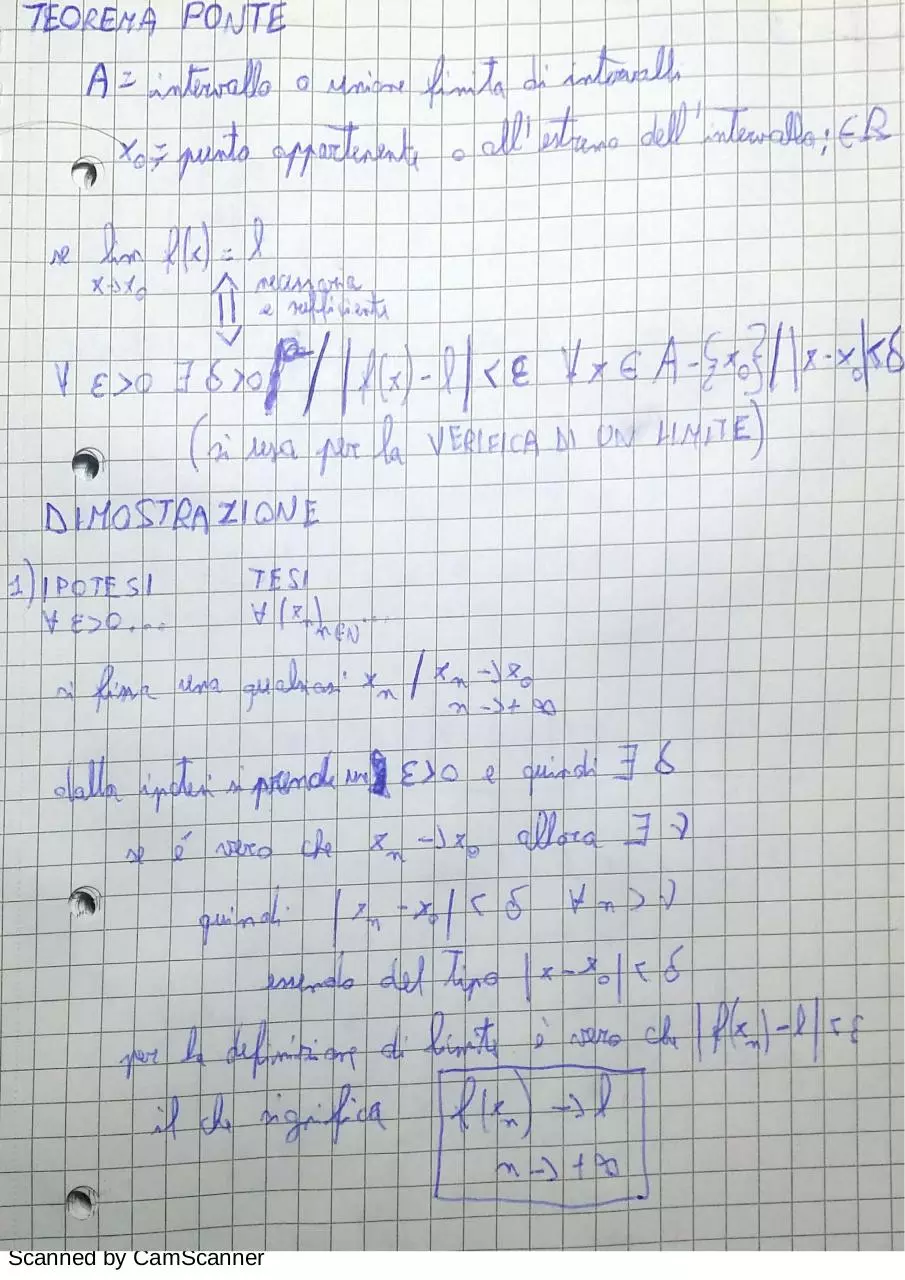 TEOREMA PONTE
A = intervallo o unione finita di intervalli
x₀ = punto appartenente o all'estremo dell'intervallo; ∈ R
se lim f(x) = l
x→x₀
necessaria
e sufficiente
∀ ε>0 ∃ δ>0 / |f(x) - l| < ε ∀ x ∈ A-{x₀} / |x - x₀| < δ
(si usa per la VERIFICA DI UN LIMITE)
DIMOSTRAZIONE
1) IPOTESI TESI
∀ ε>0 ... ∀ (xₙ)ₙ∈N ...
si fissa una qualsiasi xₙ / xₙ → x₀
n → +∞
dalla ipotesi si prende un ε>0 e quindi ∃ δ
se é vero che xₙ → x₀ allora ∃ ν
quindi |xₙ - x₀| < δ ∀ n > ν
essendo del tipo |x - x₀| < δ
per la definizione di limite è vero che |f(xₙ) - l| < ε
il che significa f(xₙ) → l
n → +∞
Scanned by CamScanner